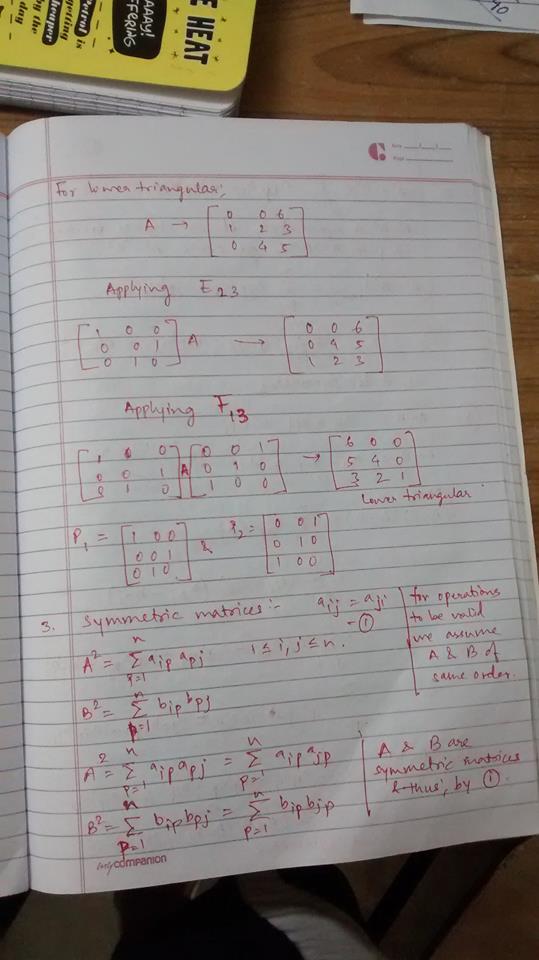 E HEAT
AAAY!
FFERING
Petrol is
getting
cheaper
by the
day
40
Date
Page
For lower triangular;
A → [ 0 0 6
1 2 3
0 4 5 ]
Applying E23
[ 1 0 0
0 0 1
0 1 0 ] A → [ 0 0 6
0 4 5
1 2 3 ]
Applying F13
[ 1 0 0
0 0 1
0 1 0 ] A [ 0 0 1
0 1 0
1 0 0 ] → [ 6 0 0
5 4 0
3 2 1 ]
lower triangular
P1 = [ 1 0 0
0 0 1
0 1 0 ] & P2 = [ 0 0 1
0 1 0
1 0 0 ]
3. Symmetric matrices:- aij = aji - ①
for operations
to be valid
we assume
A & B of
same order.
A² = n Σ p=1 aip apj 1 ≤ i, j ≤ n.
B² = n Σ p=1 bip bpj
A² = n Σ p=1 aip apj = n Σ p=1 aip ajp
B² = n Σ p=1 bip bpj = n Σ p=1 bip bjp
A & B are
symmetric matrices
& thus, by ①.
mycompanion